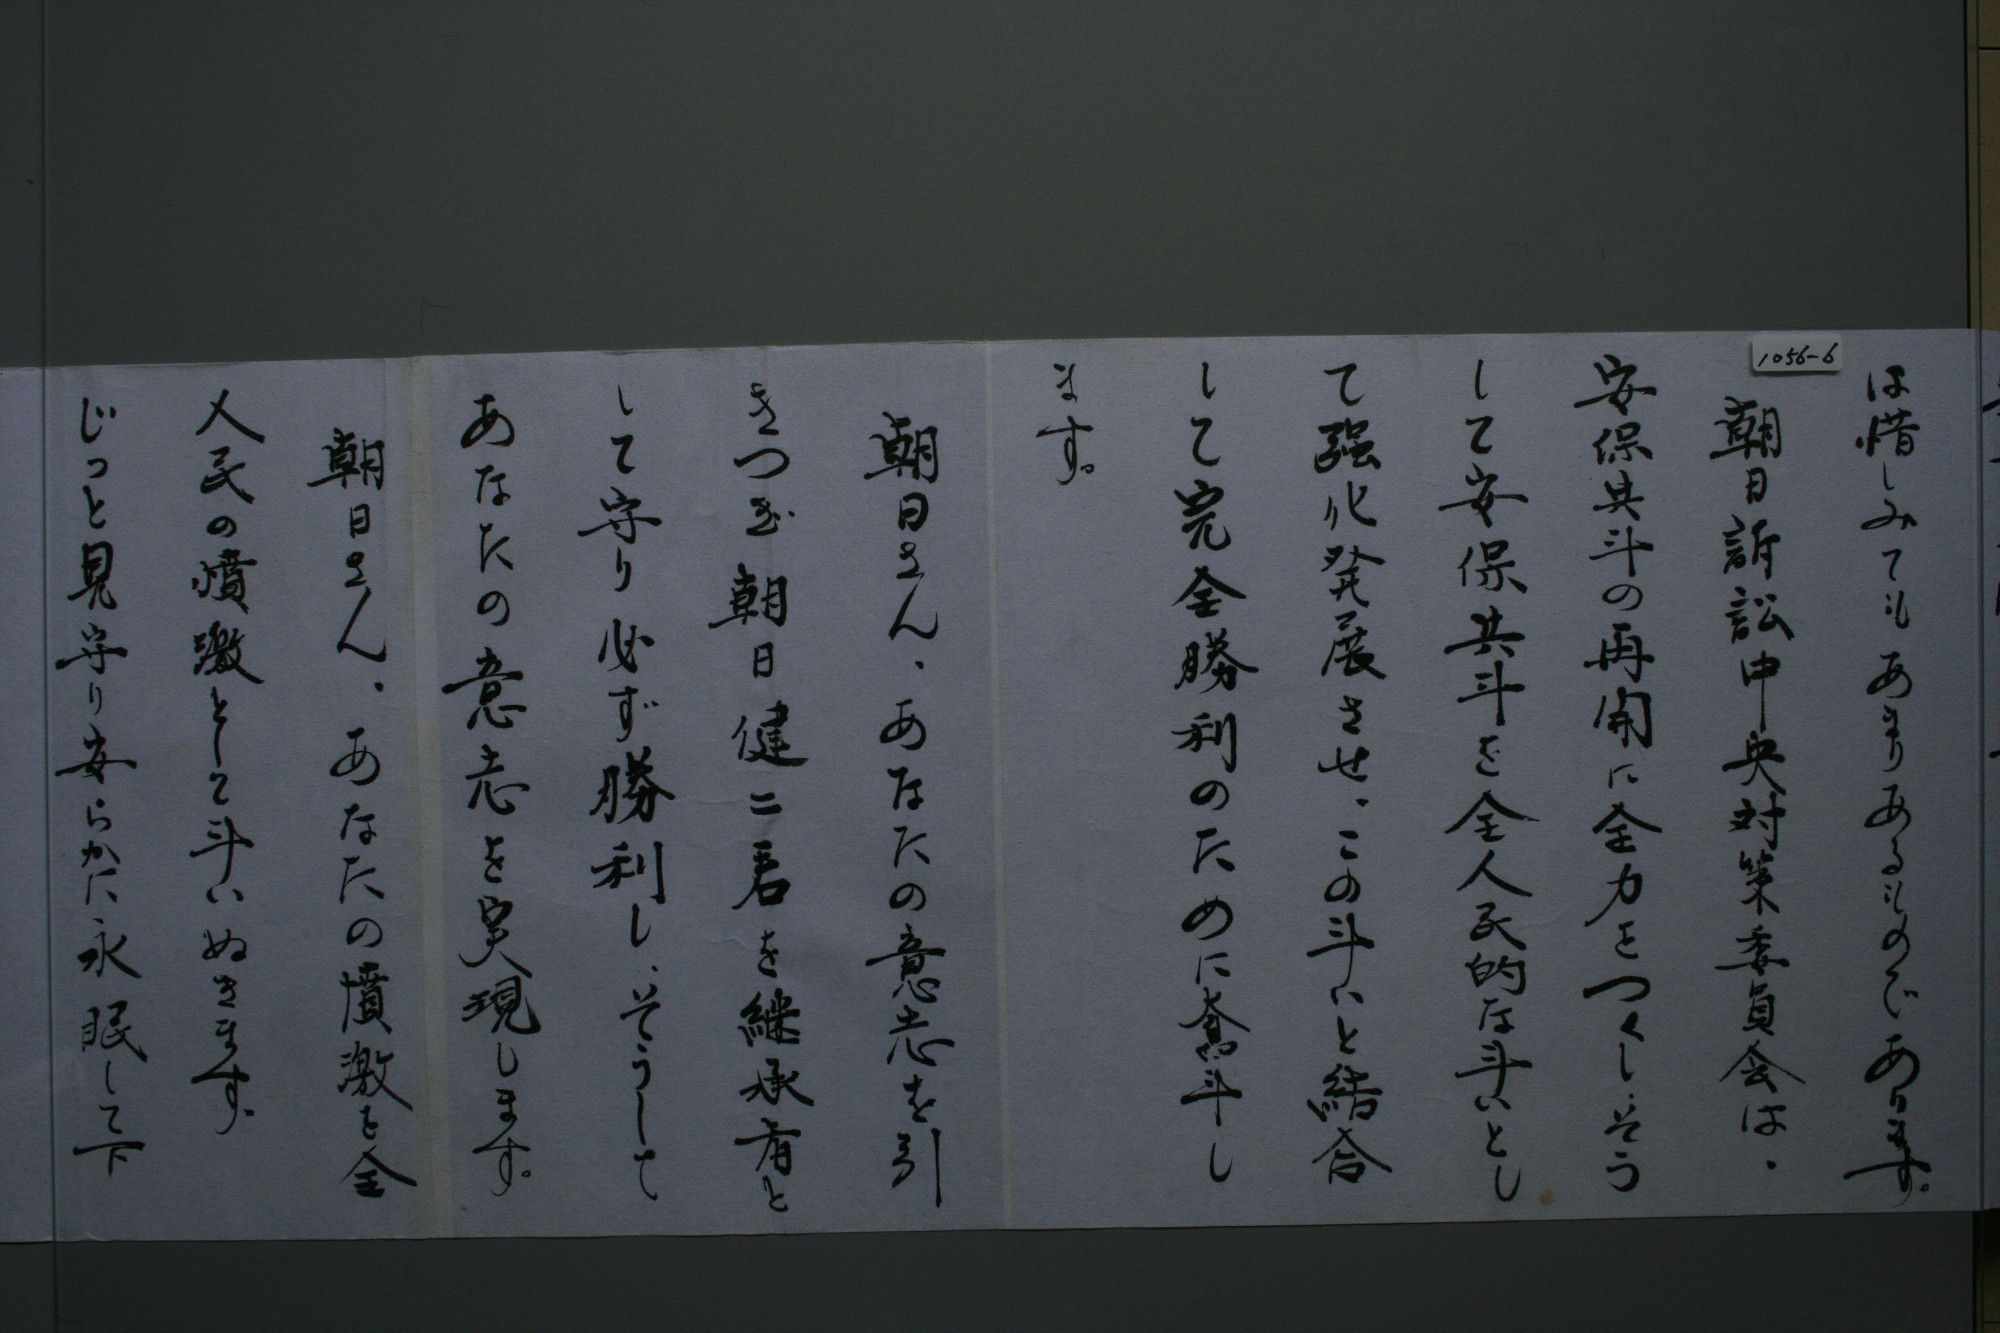 1056-6
は惜しみてもあまりあるものであります。
朝日訴訟中央対策委員会は、
安保共斗の再開に全力をつくし、そう
して安保共斗を全人民的な斗いとし
て強化発展させ、この斗いと結合
して完全勝利のために奮斗し
ます。
朝日さん、あなたの意志を引
きつぎ朝日健二君を継承者と
して守り必ず勝利し、そうして
あなたの意志を実現します。
朝日さん、あなたの憤激を全
人民の憤激として斗いぬきます。
じっと見守り安らかに永眠して下